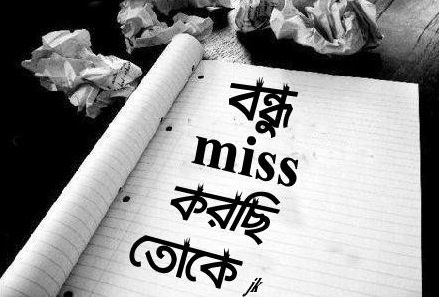 বন্ধু
miss
করছি
তোকে
jk